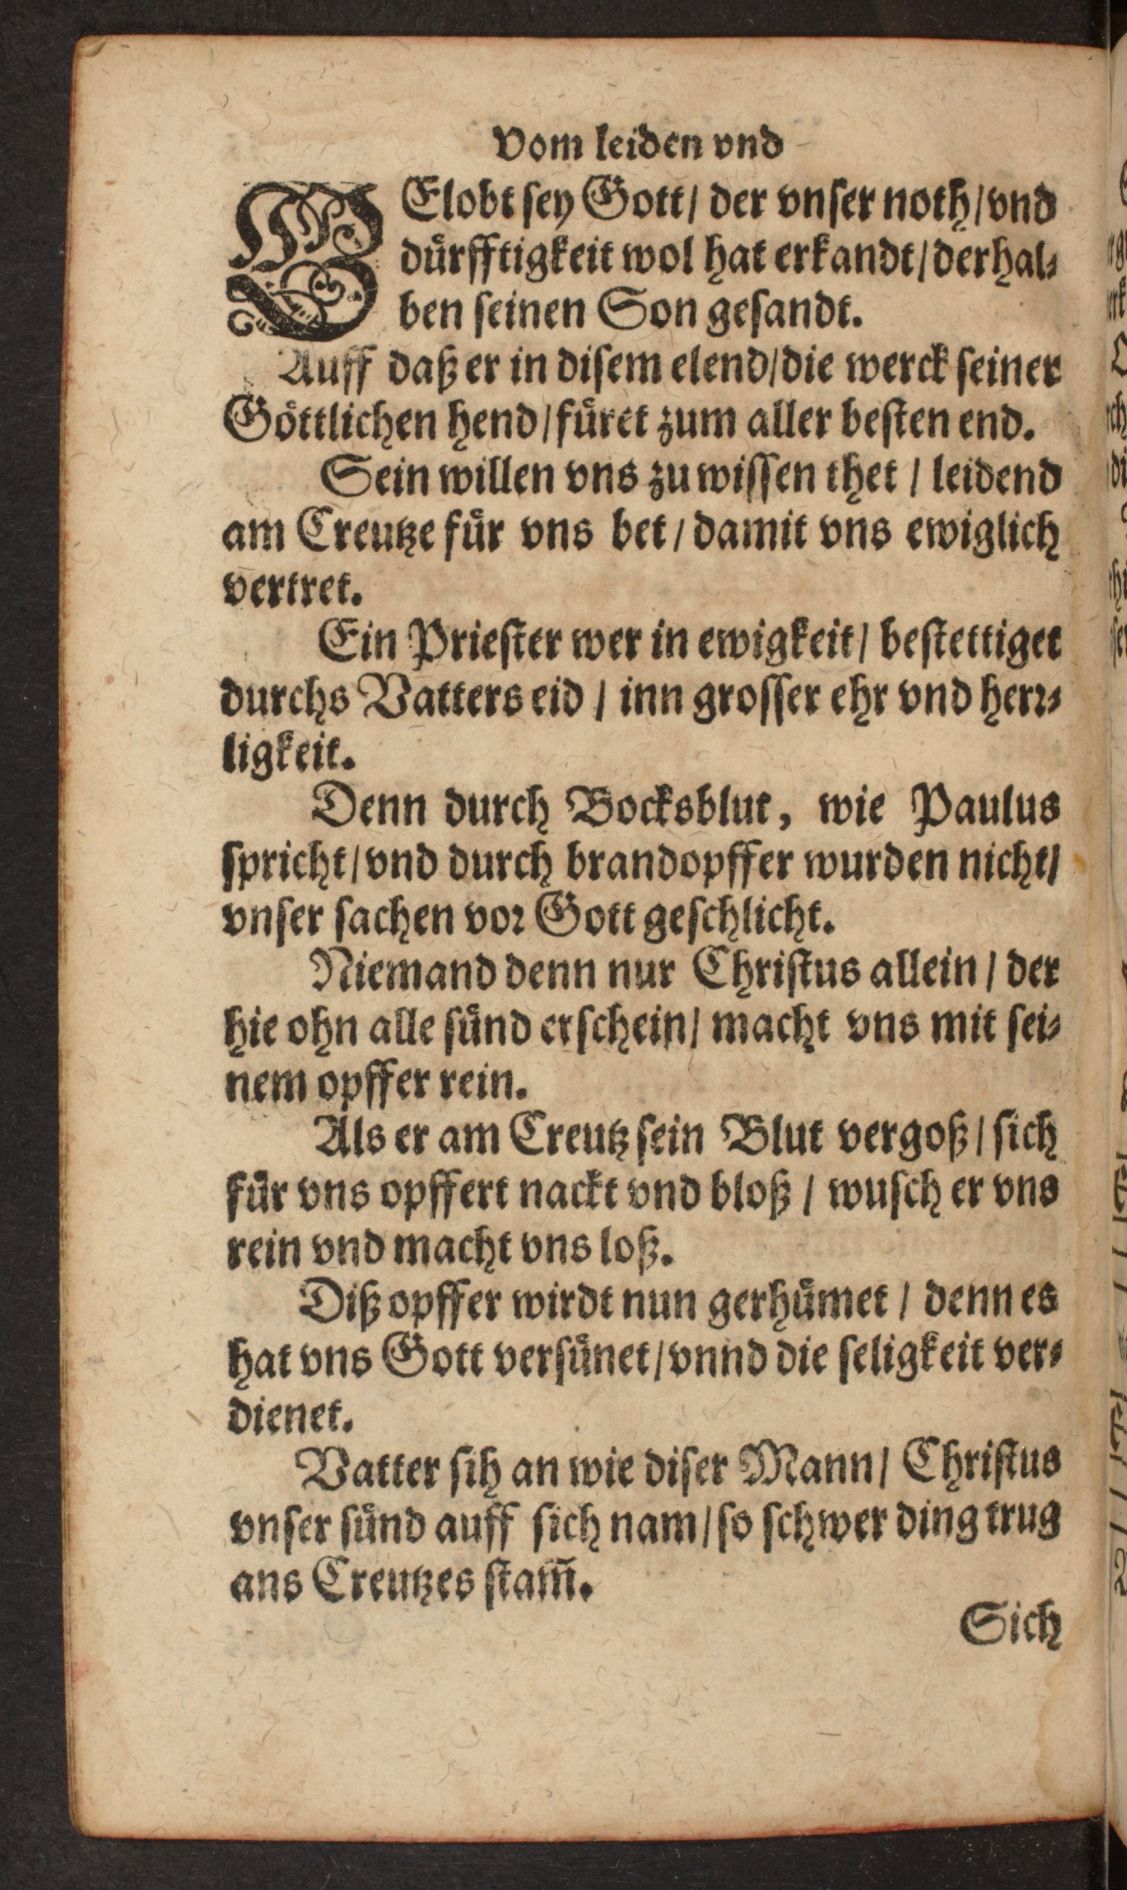 Vom leiden vnd
GElobt sey Gott/ der vnser noth/ vnd
dürfftigkeit wol hat erkandt/ derhal⸗
ben seinen Son gesandt.
Auff daß er in disem elend/ die werck seiner
Göttlichen hend/ füret zum aller besten end.
Sein willen vns zu wissen thet / leidend
am Creutze für vns bet / damit vns ewiglich
vertret.
Ein Priester wer in ewigkeit/ bestettiget
durchs Vatters eid / inn grosser ehr vnd herr⸗
ligkeit.
Denn durch Bocksblut, wie Paulus
spricht/ vnd durch brandopffer wurden nicht/
vnser sachen vor Gott geschlicht.
Niemand denn nur Christus allein / der
hie ohn alle sünd erschein/ macht vns mit sei⸗
nem opffer rein.
Als er am Creutz sein Blut vergoß / sich
für vns opffert nackt vnd bloß / wusch er vns
rein vnd macht vns loß.
Diß opffer wirdt nun gerhümet / denn es
hat vns Gott versünet/ vnnd die seligkeit ver⸗
dienet.
Vatter sih an wie diser Mann/ Christus
vnser sünd auff sich nam/ so schwer ding trug
ans Creutzes stam̃.
Sich